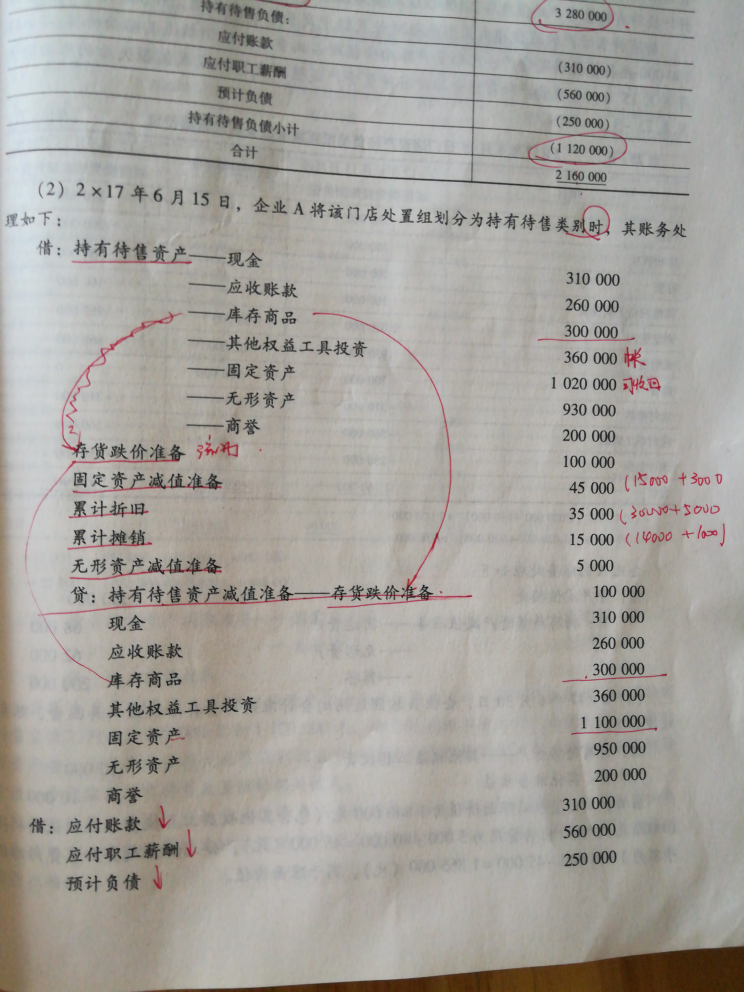 持有待售负债： 3 280 000
应付账款
应付职工薪酬 (310 000)
预计负债 (560 000)
持有待售负债小计 (250 000)
合计 (1 120 000)
2 160 000
(2) 2×17年6月15日，企业A将该门店处置组划分为持有待售类别时，其账务处
理如下：
借：持有待售资产——现金 310 000
——应收账款 260 000
——库存商品 300 000
——其他权益工具投资 360 000
——固定资产 1 020 000 可收回
——无形资产 930 000
——商誉 200 000
存货跌价准备 100 000
固定资产减值准备 45 000 (15000+3000
累计折旧 35 000 (30000+5000
累计摊销 15 000 (14000+1000)
无形资产减值准备 5 000
贷：持有待售资产减值准备——存货跌价准备 100 000
现金 310 000
应收账款 260 000
库存商品 300 000
其他权益工具投资 360 000
固定资产 1 100 000
无形资产 950 000
商誉 200 000
借：应付账款 310 000
应付职工薪酬 560 000
预计负债 250 000